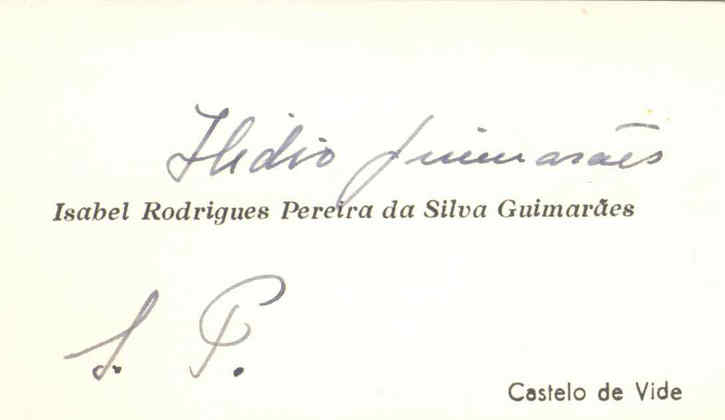 Ilidio Guimarães
Isabel Rodrigues Pereira da Silva Guimarães
S. P.
Castelo de Vide